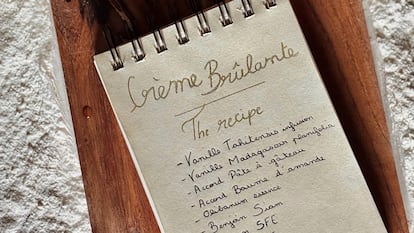 Crème Brûlante
The recipe
- Vanille Tahitensis infusion
- Vanille Madagascar planifolia
- Accord Pâte à gâteau
- Accord Baume d'amande
- Olibanum essence
- Benjoin Siam
SFE